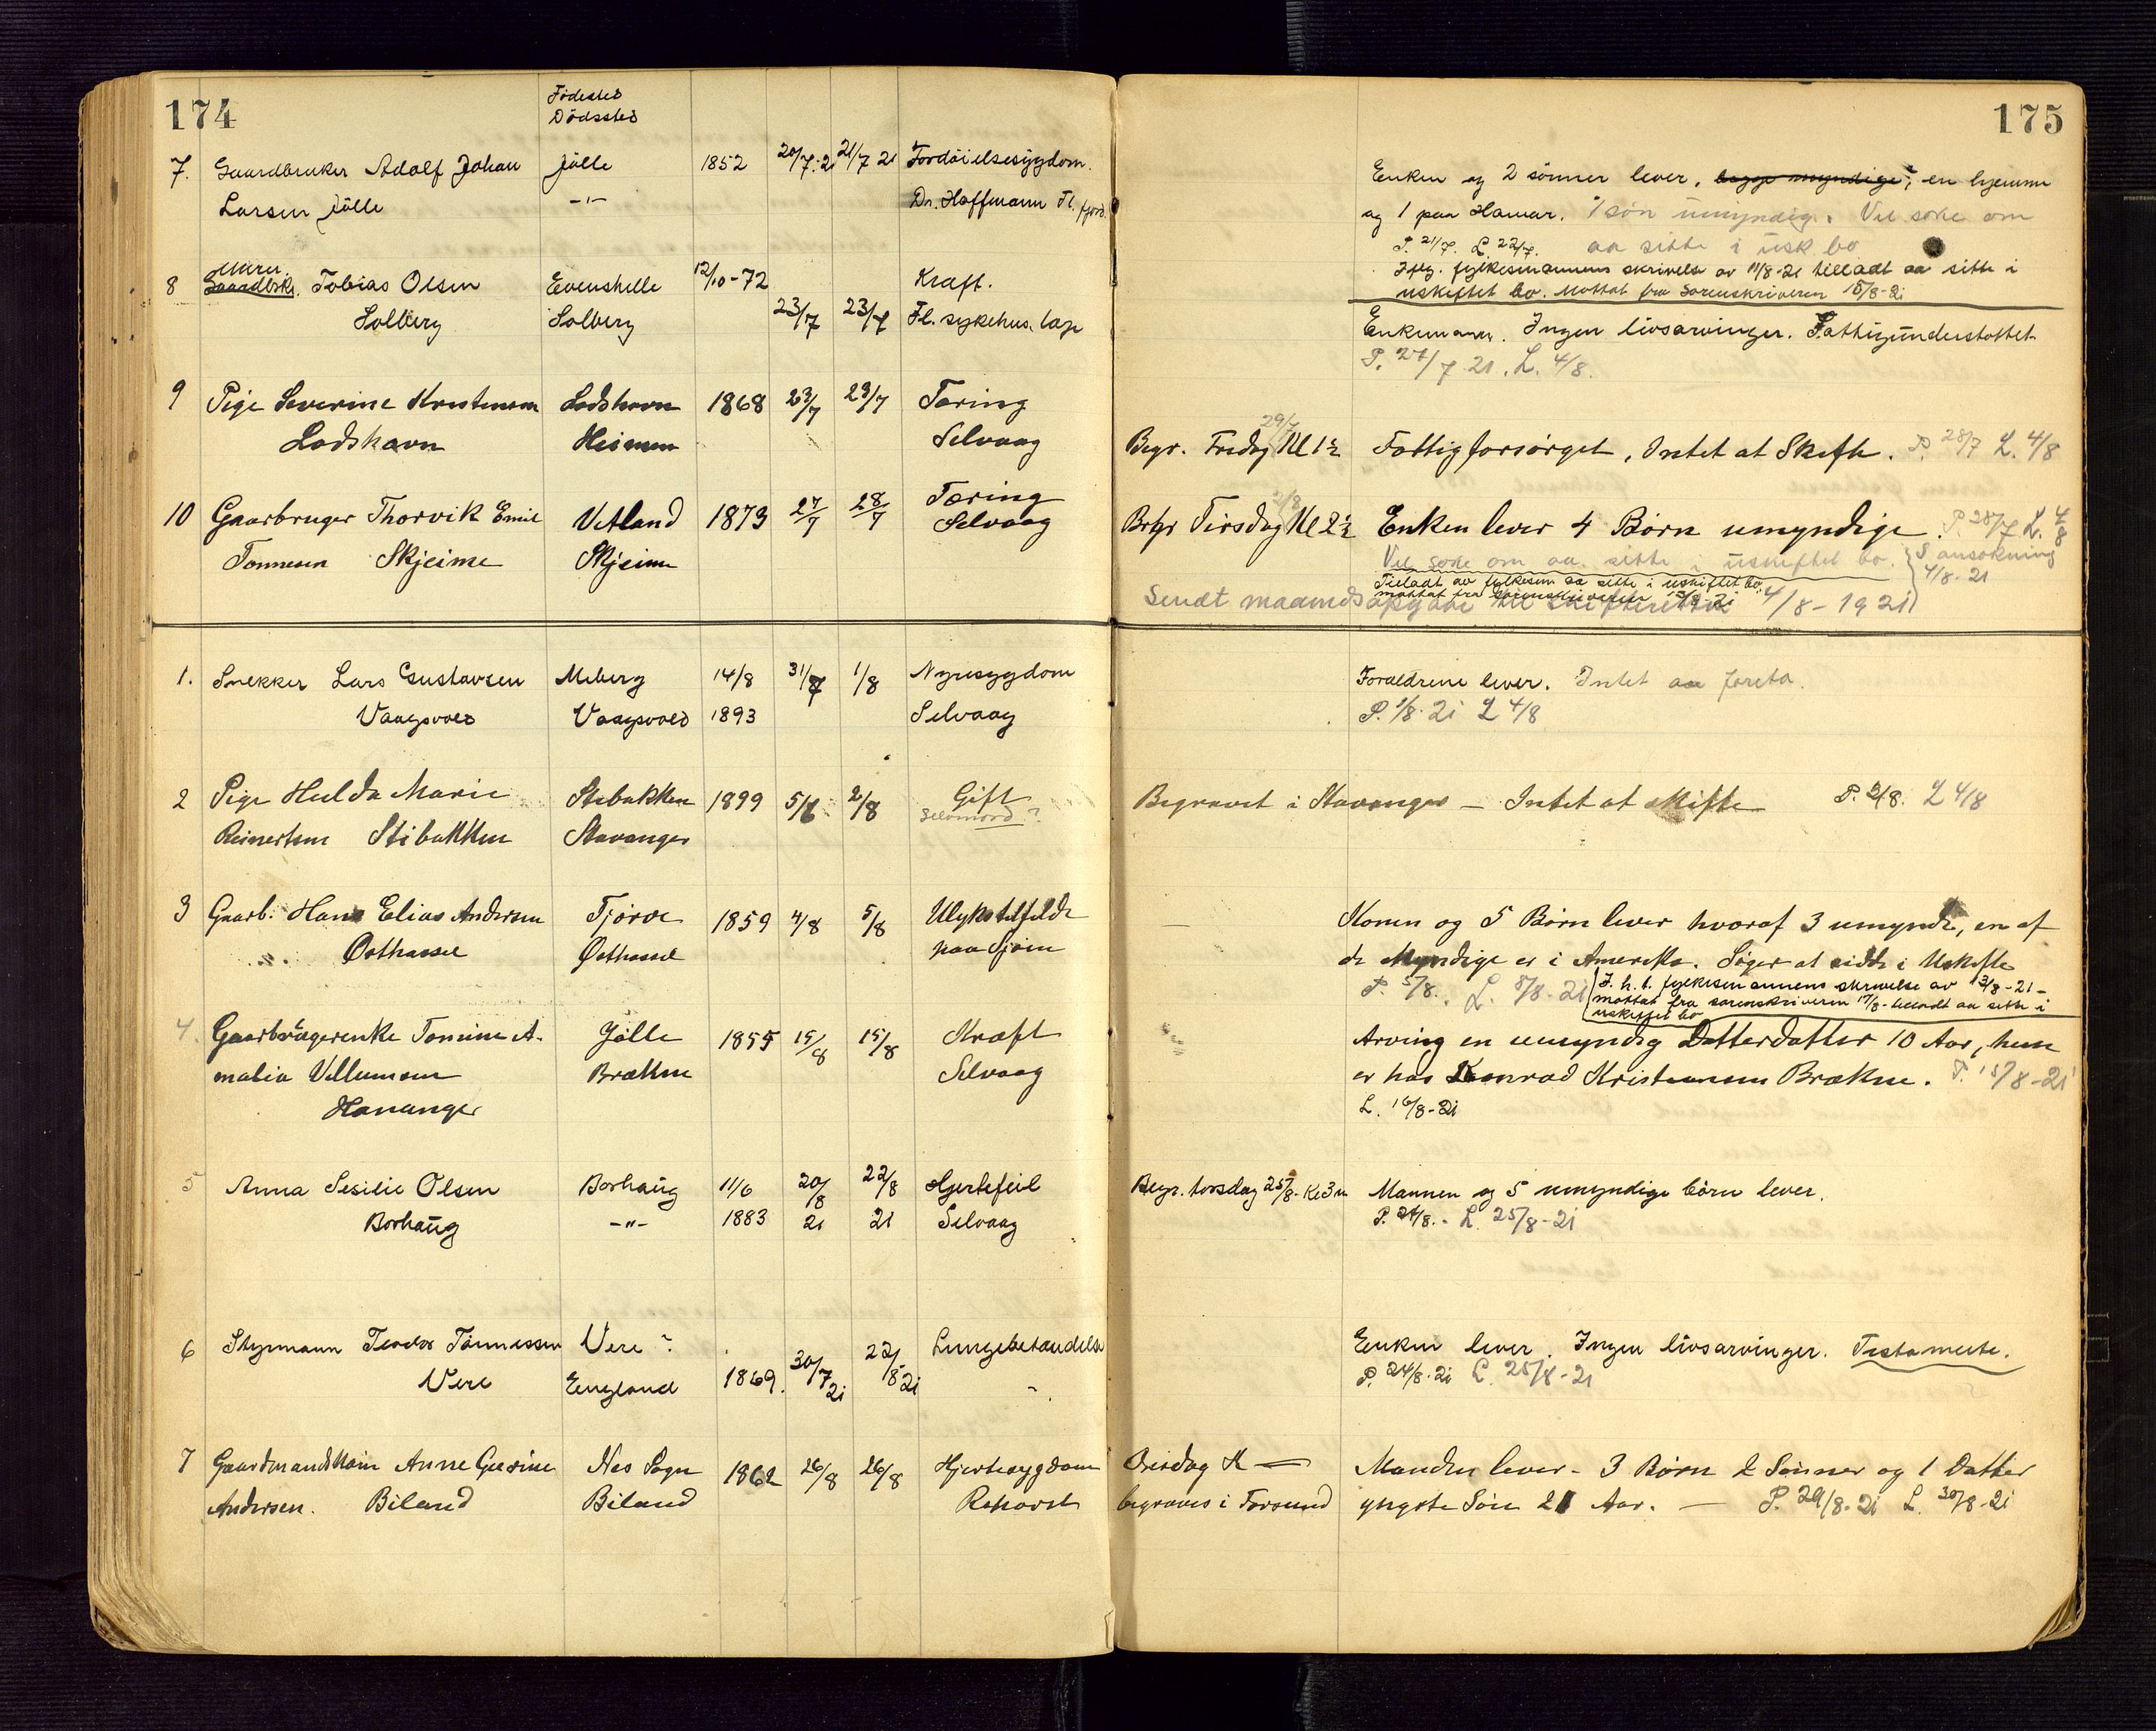 174
Födested
Dödssted
7. Gaardbruker Adolf Johan Jölle 1852 20/7.21 21/7 21 Fordöielsesygdom.
Larsen Jölle -"- Dr. Hoffmann Fl. fjord.
Murer
8 Gaardbrk. Tobias Olsen Evenshelle 12/10-72 Kræft.
Solberg Solberg 23/7 23/7 Fl. sykehus. læge
9 Pige Severine Kristensen Lodshavn 1868 23/7 23/7 Tæring
Lodshavn Heimen Selvaag
10 Gaarbruger Thorvik Emil Vetland 1873 27/7 28/7 Tæring Selvaag
Tonnesen Skjeime Skjeime
1. Snekker Lars Gustavsen Meberg 14/8 31/7 1/8 Nyresygdom
Vaagsvold Vaagsvold 1893 Selvaag
2 Pige Hulda Marie Stibakken 1899 5/6 2/8 Gift
Reinertsen Stibakken Stavanger Selvmord?
3 Gaarb. Hans Elias Andersen Tjörve 1859 4/8 5/8 Ulykstilfelde
Östhassel Östhassel paa Sjöen
4. Gaarbrugerenke Tomine A- Jölle 1855 15/8 15/8 Kræft
malia Villumsen Brækne Selvaag
Hananger
5 Anna Sesilie Olsen Borhaug 11/6 20/8 22/8 Hjertefeil
Borhaug -"- 1883 21 21 Selvaag
6 Styrmann Teodor Tönnessen Vere ? Lungebetændelse
Vere England 1869. 30/7 21 22/8 21
7 Gaardmandskone Anne Gesine Nes Sogn 1862 26/8 26/8 Hjertesygdom
Andersen. Biland Biland
175
Enken og 2 sönner lever, begge myndige, en hjemme
og 1 paa Hamar. 1 sön umyndig. Vil söke om
P. 21/7. L 22/7. aa sitte i usk bo
Iflg. fylkesmannens skrivelse av 11/8-21 tilladt aa sitte i
uskiftet bo. Mottat fra sorenskriveren 18/8-21
Enkemann. Ingen livsarvinger. Fattigunderstöttet
P. 27/7 21. L. 4/8.
29/7
Begr. Fredag Kl 1½ Fattigforsörget, Intet at Skifte. P. 28/7 L. 4/8
2/8
Begr Tirsdag Kl 2½ Enken lever 4 Börn umyndige. P 28/7 L. 4/8
Vil söke om aa sitte i uskiftet bo. S. ansökning
4/8-21
Tilladt av fylkesm aa sitte i uskiftet bo,
mottat fra sorenskriveren
Sendt maanedsopgave til skifteretten 4/8-1921
Foræeldrene lever. Intet aa foreta.
P. 1/8.21 L 4/8
Begravet i Stavanger – Intet at skifte P. 2/8. L 4/8
Konen og 5 Börn lever hvoraf 3 umynde, en af
de Myndige er i Amerika. Söger at sidde i Uskifte
P. 5/8. L. 8/8-21 I. h. t. fylkesmannens skrivelse av 13/8-21-
mottat fra sorenskriveren 17/8- tilladt aa sitte i
uskiftet bo
Arving en umyndig Datterdatter 10 Aar, hun
er hos Konrad Kristensen Brækne. P. 15/8-21
L. 16/8-21
Begr. torsdag 25/8. Kl 3 Mannen og 5 umyndige börn lever.
P. 24/8. - L. 25/8-21
Enken lever. Ingen livsarvinger. Testamente.
P. 24/8.21 L. 25/8-21
Onsdag Kl — Manden lever - 3 Börn 2 Sönner og 1 Datter
begraves i Farsund yngste Sön 21 Aar. — P. 29/8-21 L. 30/8-21